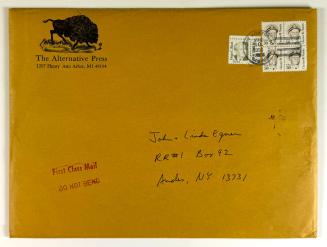 The Alternative Press
1207 Henry Ann Arbor, MI 48104
John & Linda Egner
RR#1 Box 42
Andes, NY 13731
First Class Mail
DO NOT BEND